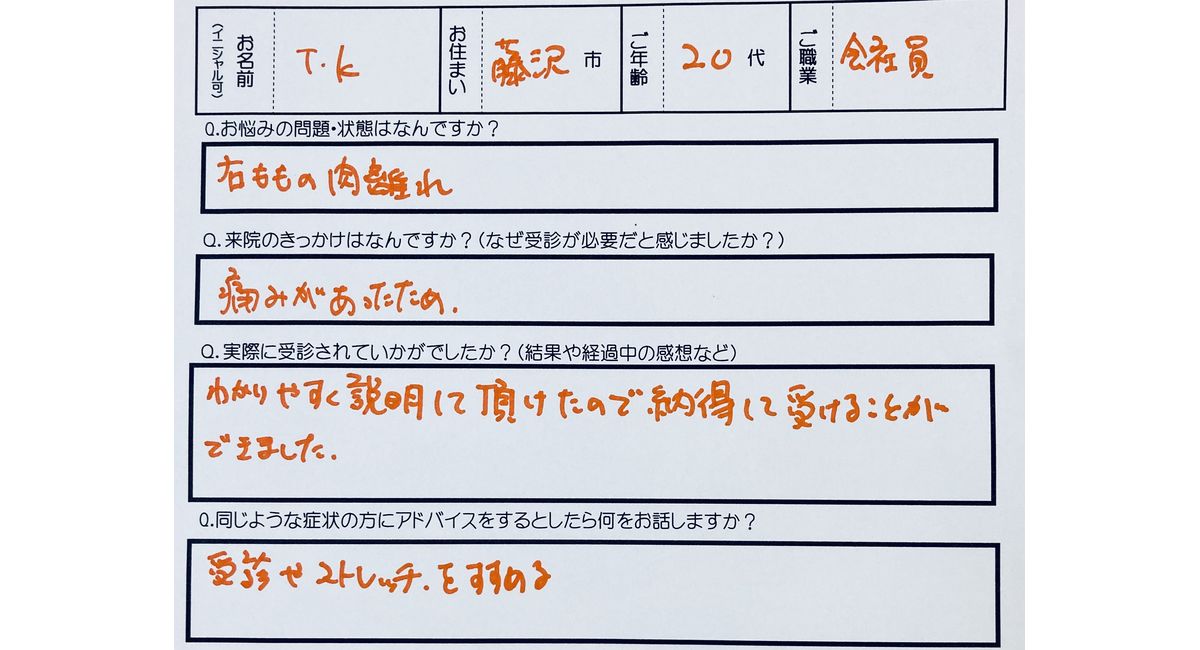 お名前 (イニシャル可) T.K お住まい 藤沢 市 ご年齢 20 代 ご職業 会社員
Q.お悩みの問題・状態はなんですか？
右ももの肉離れ
Q.来院のきっかけはなんですか？(なぜ受診が必要だと感じましたか？)
痛みがあったため.
Q.実際に受診されていかがでしたか？(結果や経過中の感想など)
わかりやすく説明して頂けたので納得して受けることが
できました.
Q.同じような症状の方にアドバイスをするとしたら何をお話しますか？
受診やストレッチ.をすすめる